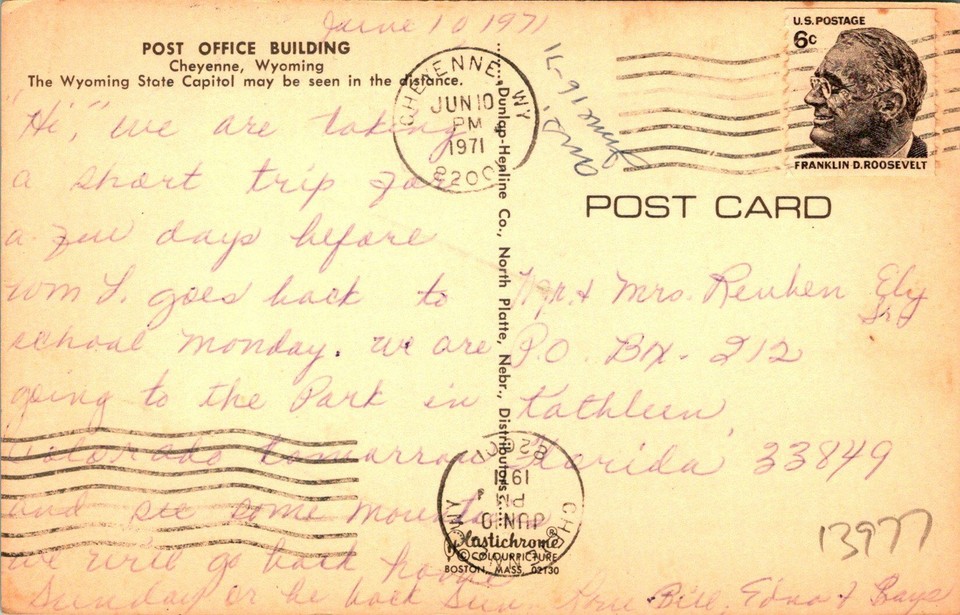 June 10 1971
POST OFFICE BUILDING
Cheyenne, Wyoming
The Wyoming State Capitol may be seen in the distance.
"Hi", we are taking
a short trip for
a few days before
Wm L. goes back to
school Monday. We are
going to the Park in
Colorado tomorrow
and see some mountains
we will go back home
Sunday or be back Sun. Love Bill, Edna & Boys
CHEYENNE, WY
JUN 10
PM
1971
8200
Dunlap-Henline Co., North Platte, Nebr., Distributors
June 16-71
U.S. POSTAGE
6c
FRANKLIN D. ROOSEVELT
POST CARD
Mr. & Mrs. Reuben Ely
Sr.
P.O. BX. 212
Kathleen,
Florida 33849
JUN 10
PM
1971
820
Plastichrome
© COLOURPICTURE
BOSTON, MASS. 02130
13977